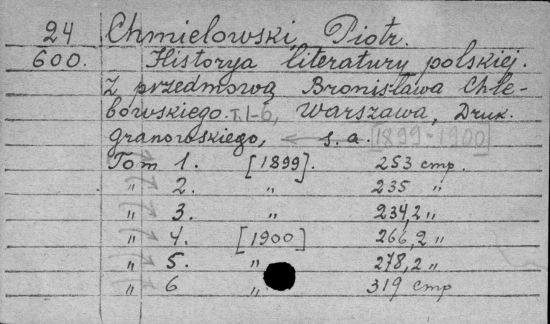 24 Chmielowski, Piotr.
600. Historya literatury polskiej.
Z przedmową Bronisława Chle-
bowskiego. T. 1-6, Warszawa, Druk.
granowskiego, s. a. [1899-1900]
Tom 1. [1899]. 253 стр.
" 2. " 235 "
" 3. " 234,2 "
" 4. [1900] 266,2 "
" 5. " 278,2 "
" 6 " 319 стр